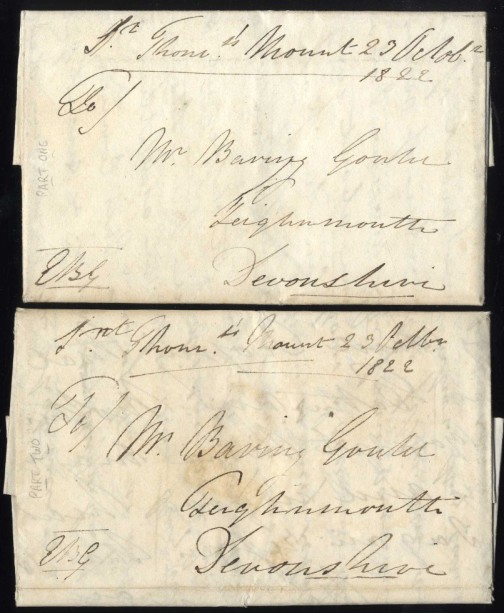 St Thoms Mount 23 Octobr
1822
To/
Mr Baring Gould
Teighnmouth
Devonshire
EBG
PART ONE
Snt Thoms Mount 23 Octbr
1822
To/
Mr Baring Gould
Teighnmouth
Devonshire
EBG
PART TWO